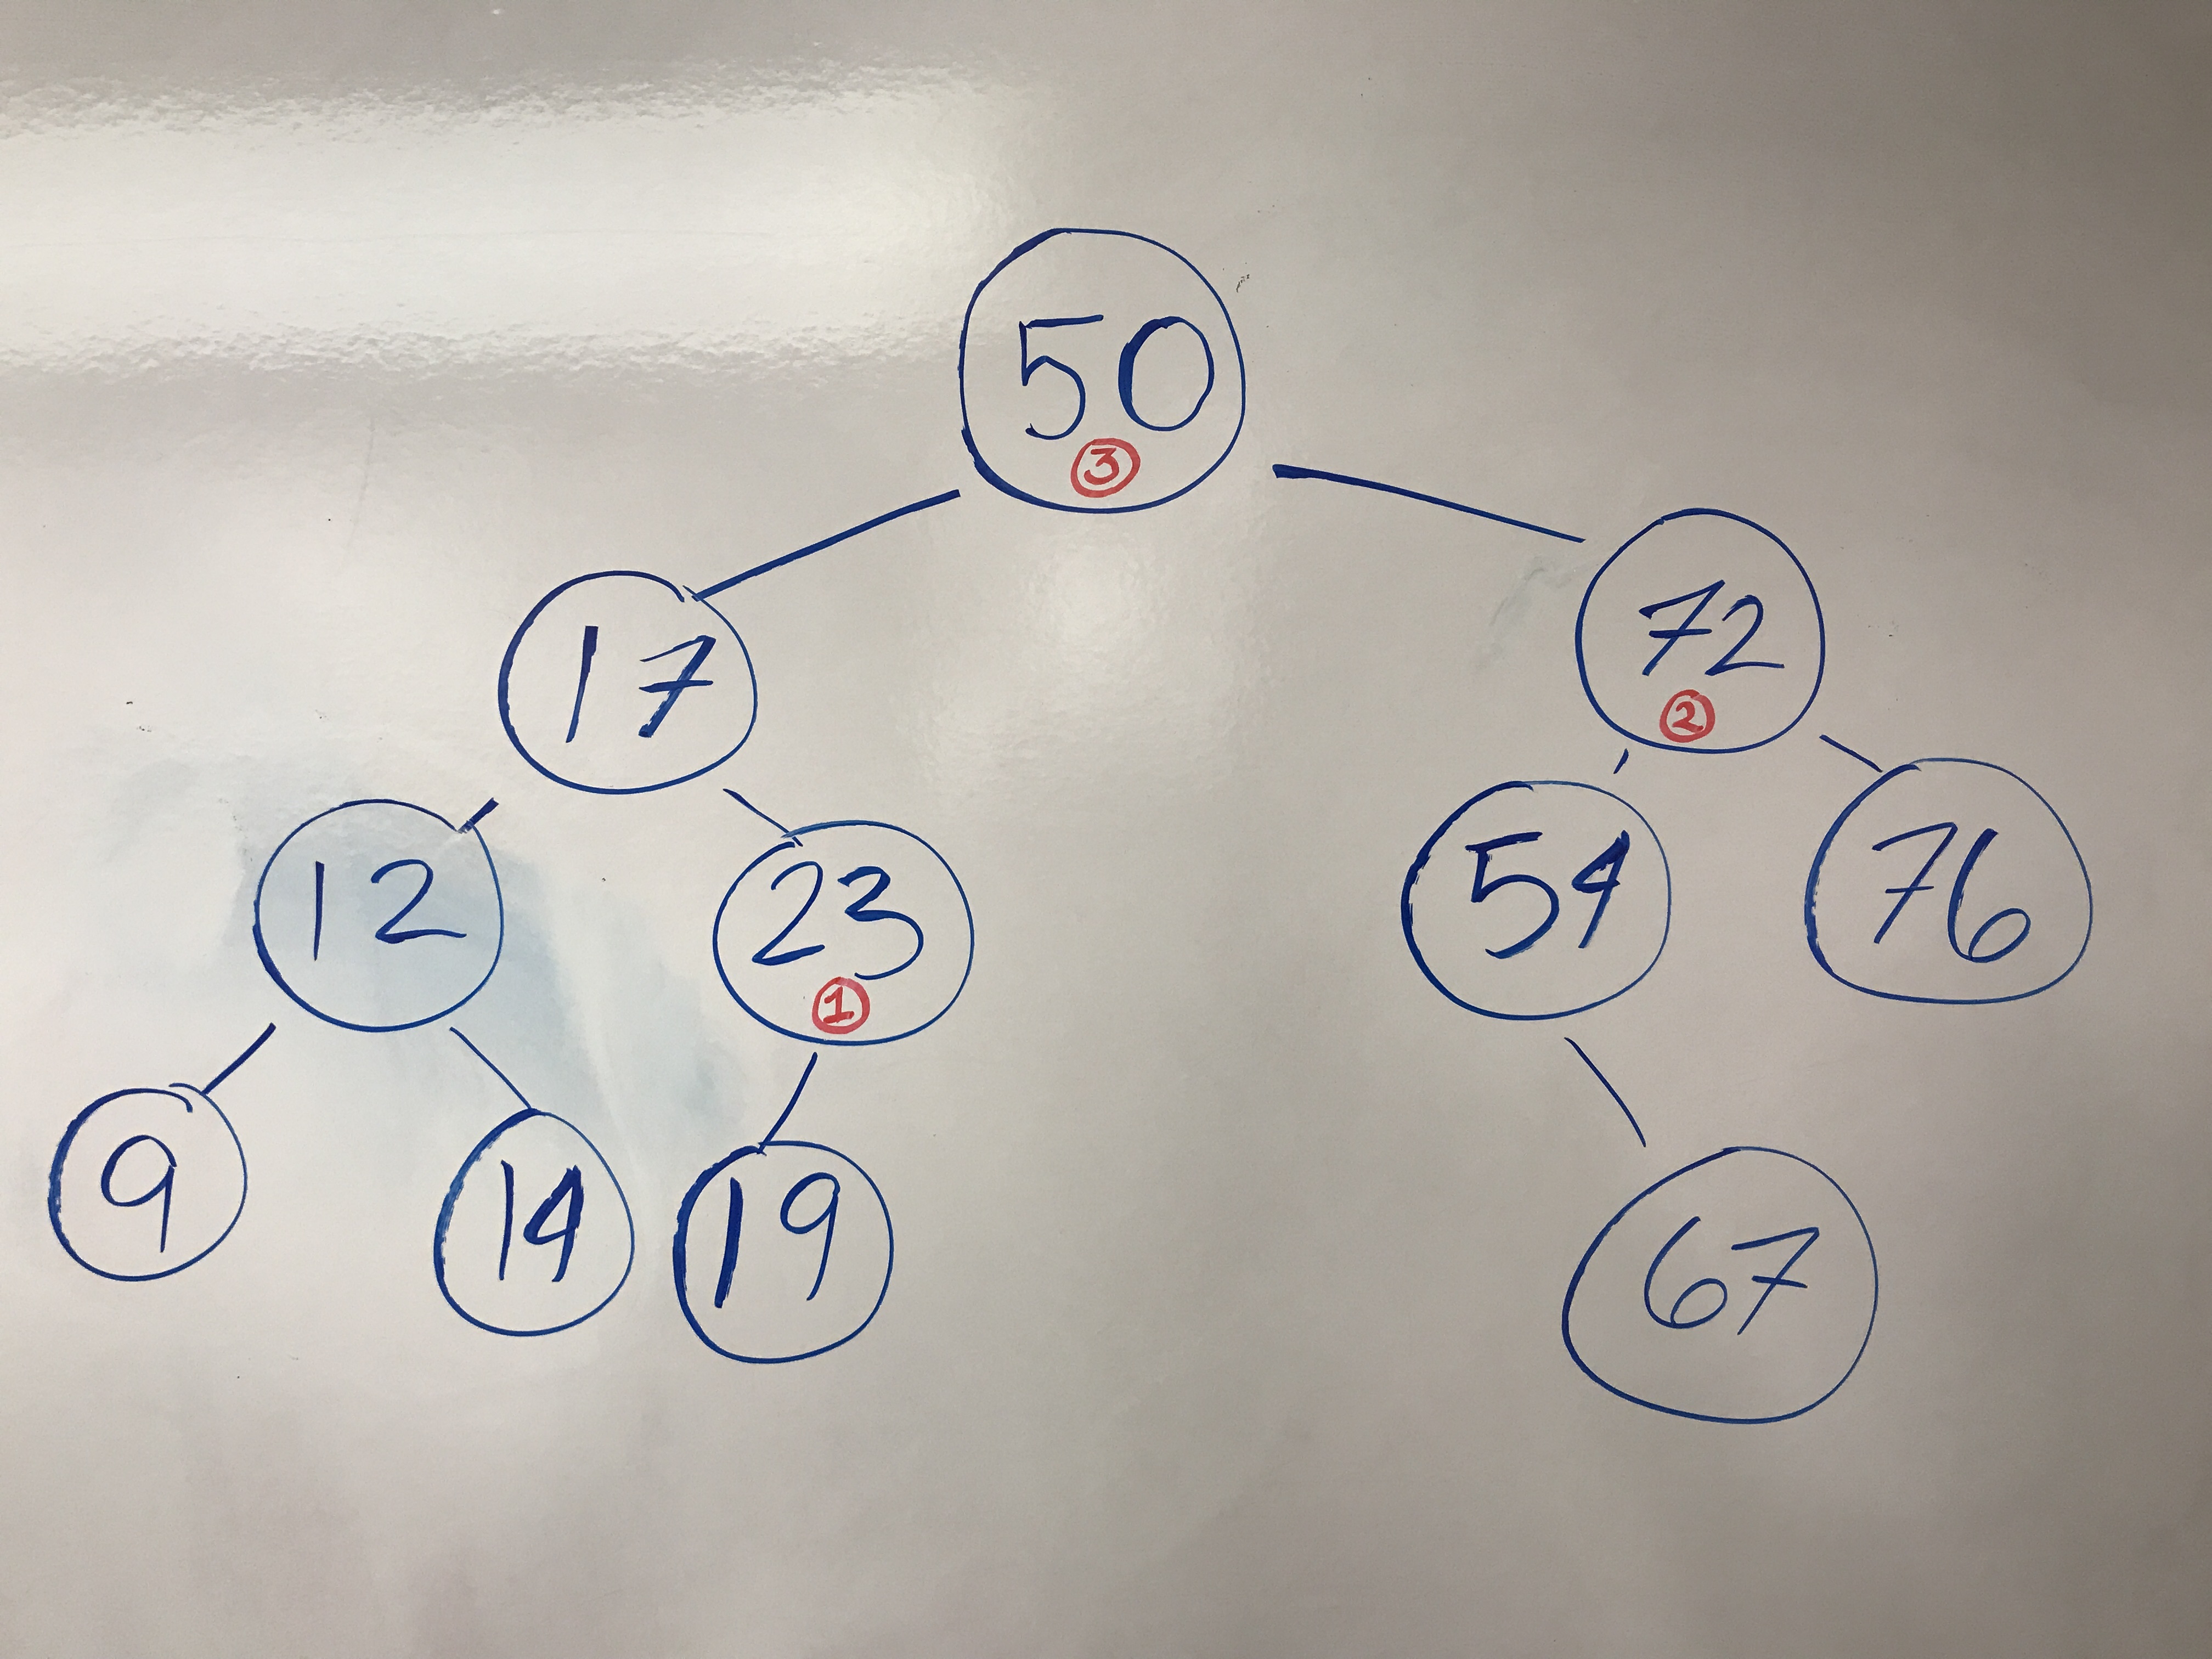 50
3
17
72
2
12
23
1
54
76
9
14
19
67